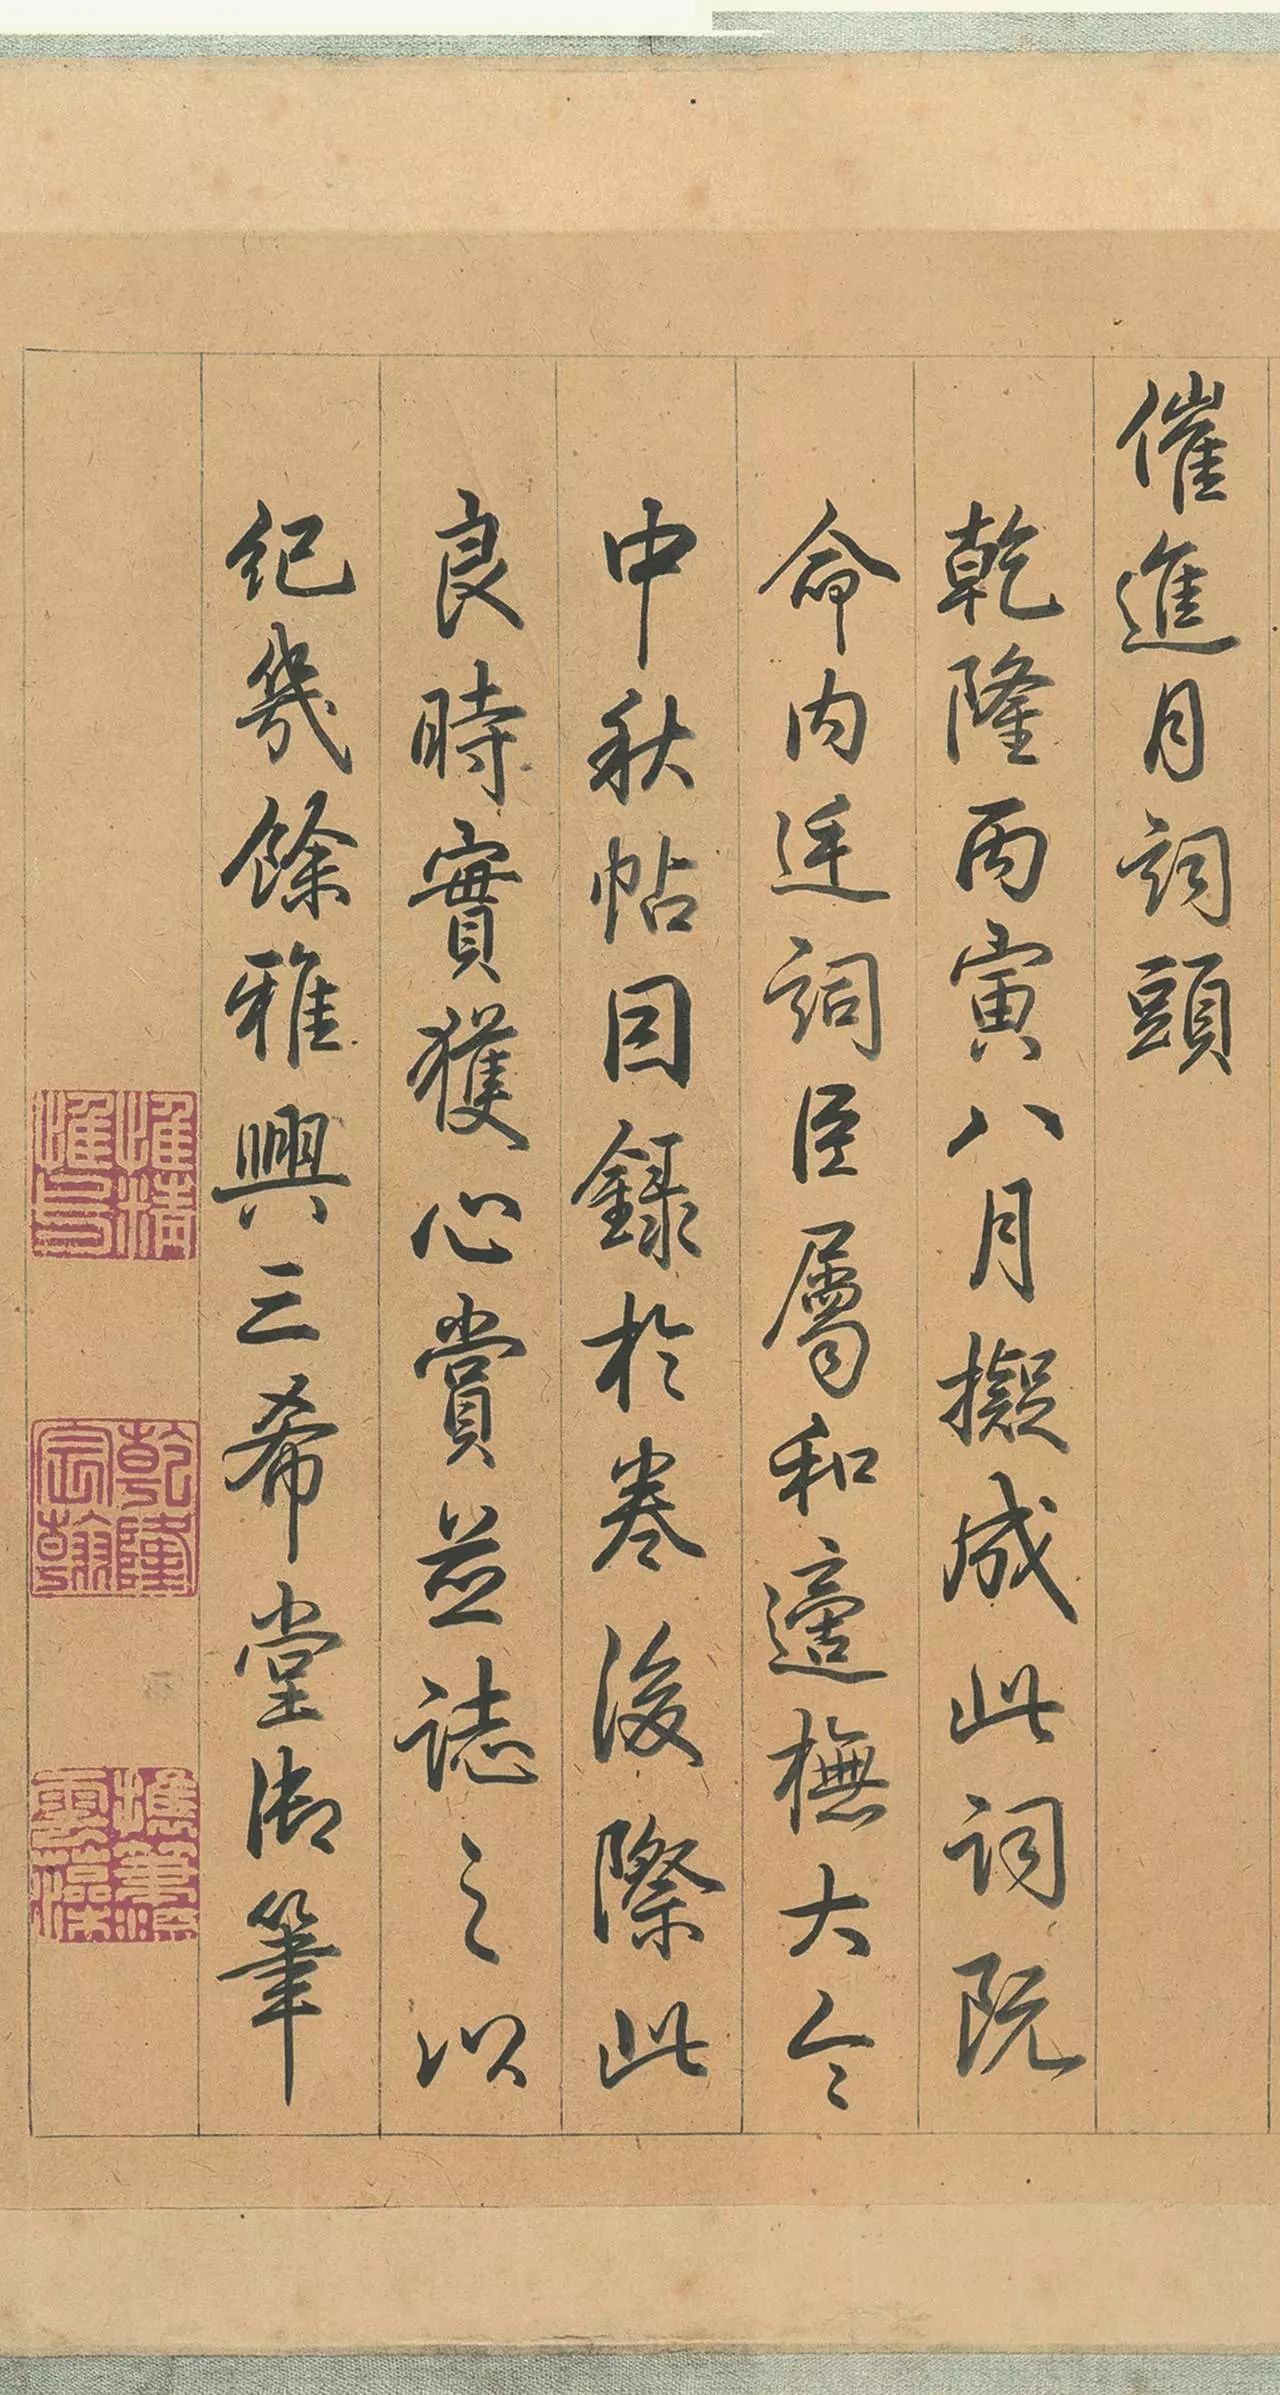 催進月詞頭
乾隆丙寅八月擬成此詞既
命内廷詞臣屬和適撫大令
中秋帖因錄於卷後際此
良時實獲心賞並誌之以
紀幾餘雅興三希堂御筆
乾隆
宸翰